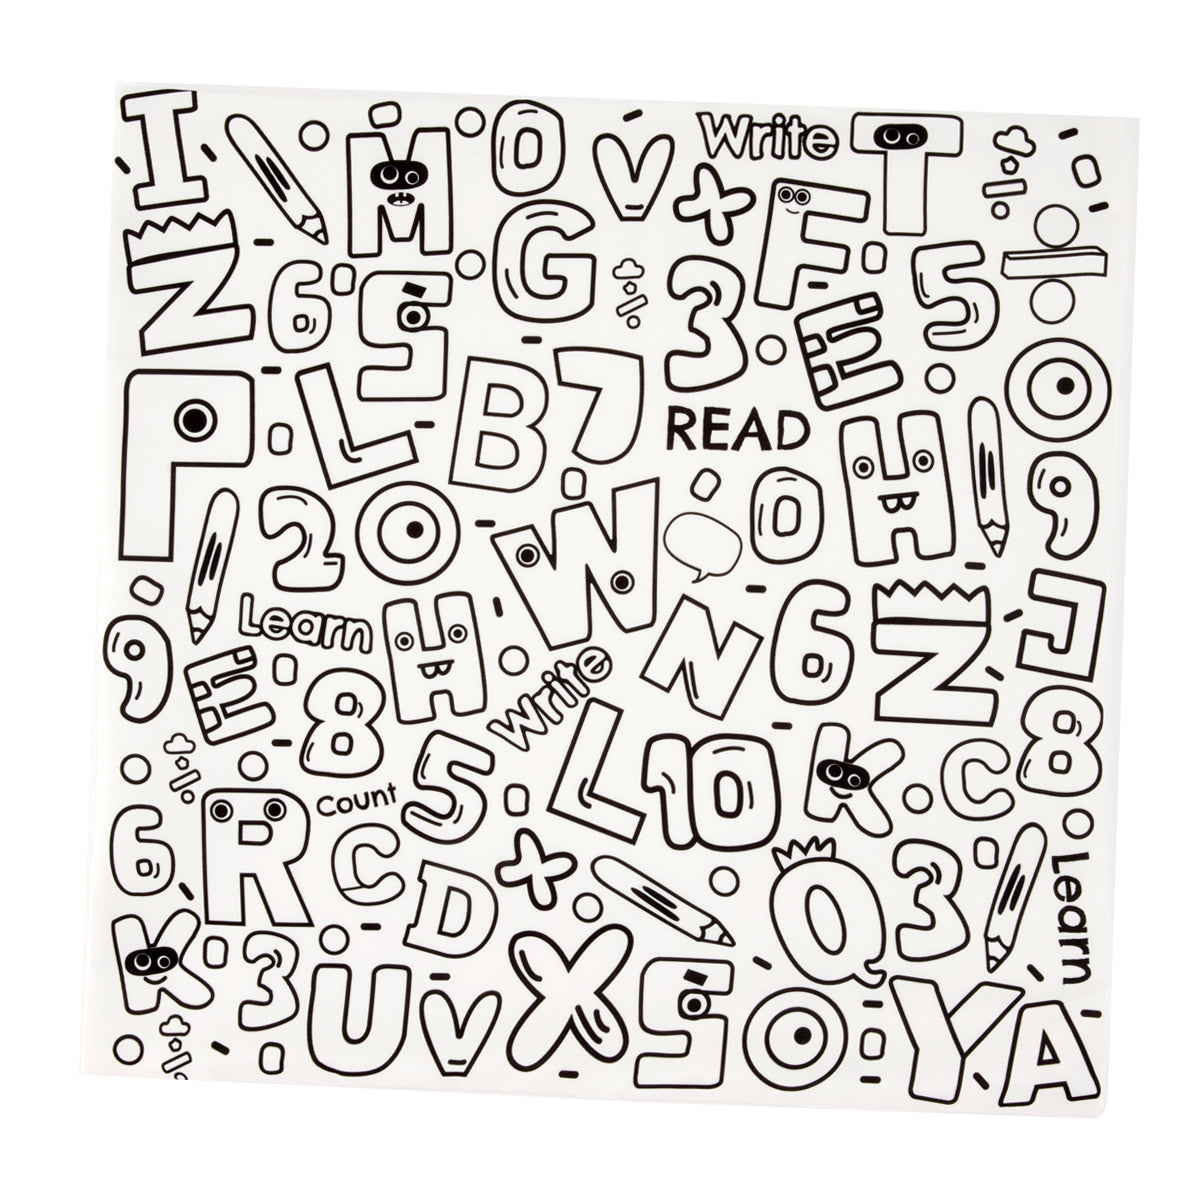 I M O V Write T
Z 6 S G x 3 F E 5
P L B 7 READ H O 9
2 O W 0 H
9 Learn H Write N 6 Z J
E 8 5 L 10 K C 8
6 R Count C D x Q 3 Learn
K 3 U V X S O Y A